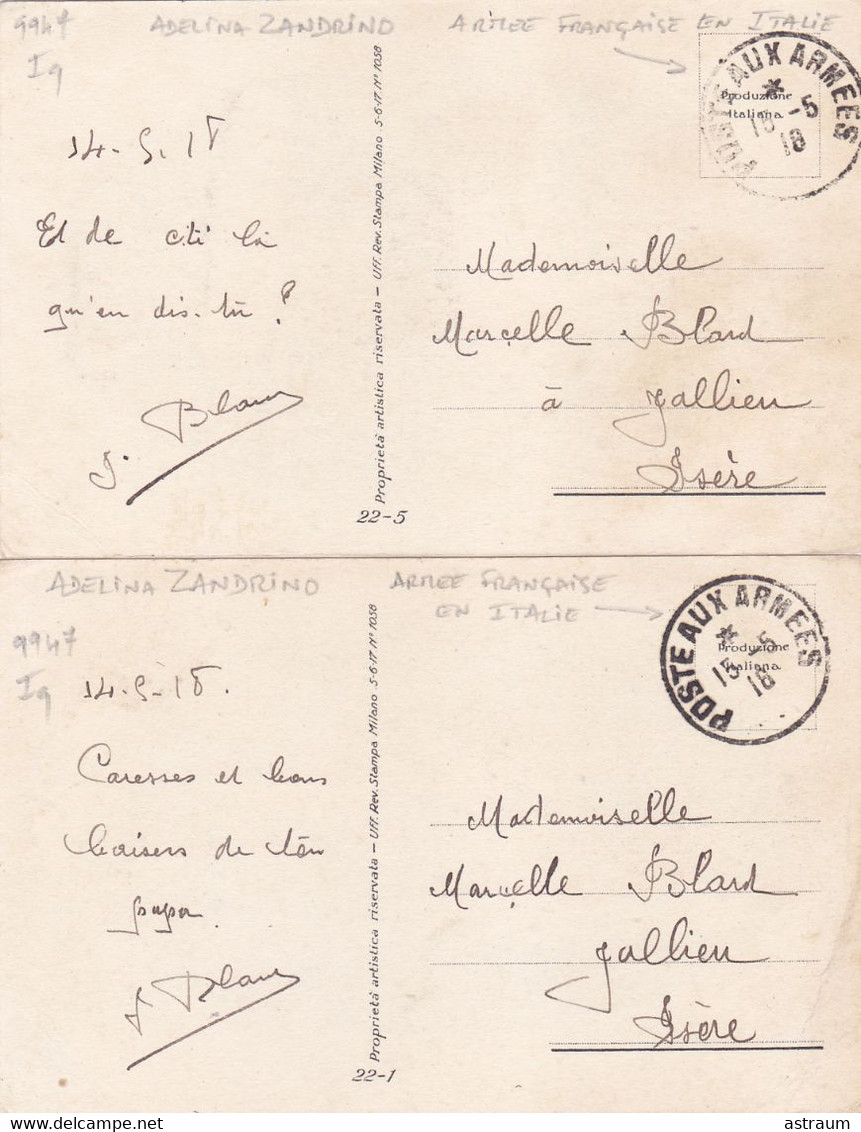 9947
Iq
ADELINA ZANDRINO
ARMEE FRANÇAISE EN ITALIE
POSTE AUX ARMEES
* 15-5 18
Produzione
Italiana
14-5-18
Et de citi là
qu'en dis-tu ?
J.
Mademoiselle
Marcelle Blard
à Jallieu
Isère
Proprietà artistica riservata - Uff. Rev. Stampa Milano 5-6-17 N° 1058
22-5
ADELINA ZANDRINO
ARMEE FRANÇAISE
EN ITALIE
9947
Iq
POSTE AUX ARMEES
* 15-5 18
Produzione
Italiana
14-5-18.
Caresses et bons
baisers de ton
papa.
J
Mademoiselle
Marcelle Blard
Jallieu
Isère
Proprietà artistica riservata - Uff. Rev. Stampa Milano 5-6-17 N° 1058
22-1
astraum